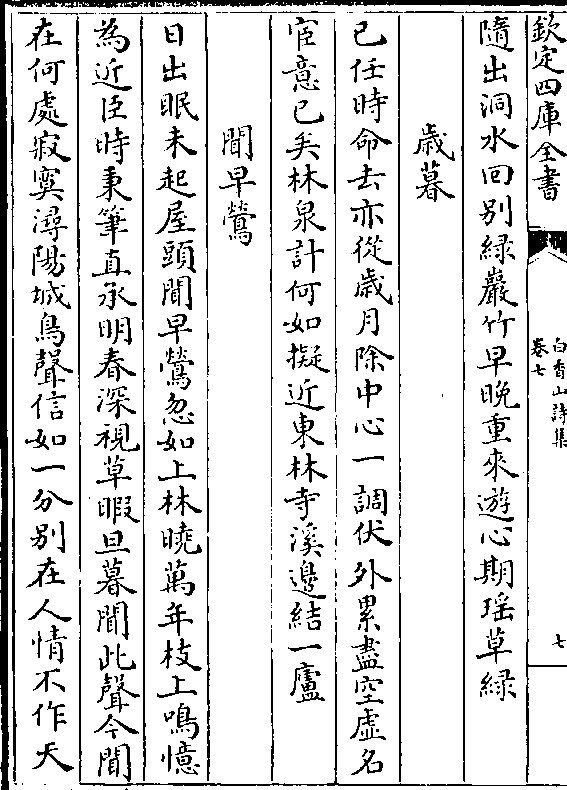 欽定四庫全書
白香山詩集
卷七
七
隨出洞水回别緑巖竹早晚重來遊心期瑶草緑
歲暮
已任時命去亦從歲月除中心一調伏外累盡空虚名
宦意已矣林泉計何如擬近東林寺溪邊結一廬
聞早鶯
日出眠未起屋頭聞早鶯忽如上林曉萬年枝上鳴憶
為近臣時秉筆直承明春深視草暇旦暮聞此聲今聞
在何處寂寞潯陽城鳥聲信如一分别在人情不作天